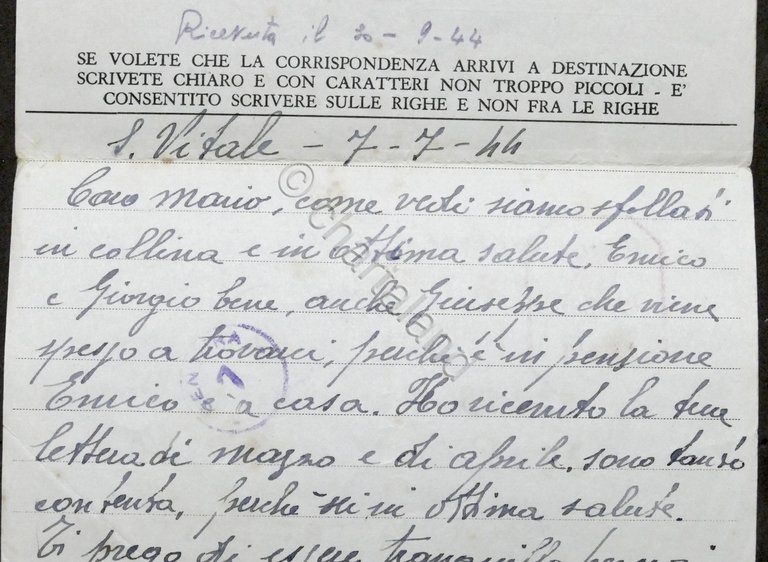 Ricevuta il 30 - 9 - 44
SE VOLETE CHE LA CORRISPONDENZA ARRIVI A DESTINAZIONE
SCRIVETE CHIARO E CON CARATTERI NON TROPPO PICCOLI - E'
CONSENTITO SCRIVERE SULLE RIGHE E NON FRA LE RIGHE
S. Vitale - 7 - 7 - 44
Caro Mario, come vedi siamo sfollati
in collina e in ottima salute, Enrico
e Giorgio bene, anche Giuseppe che viene
spesso a trovarci, perché è in pensione
Enrico è a casa. Ho ricevuto la tua
lettera di marzo e di aprile, sono tanto
contenta, perché sei in ottima salute.
Ti prego di essere tranquillo
© Chartaland